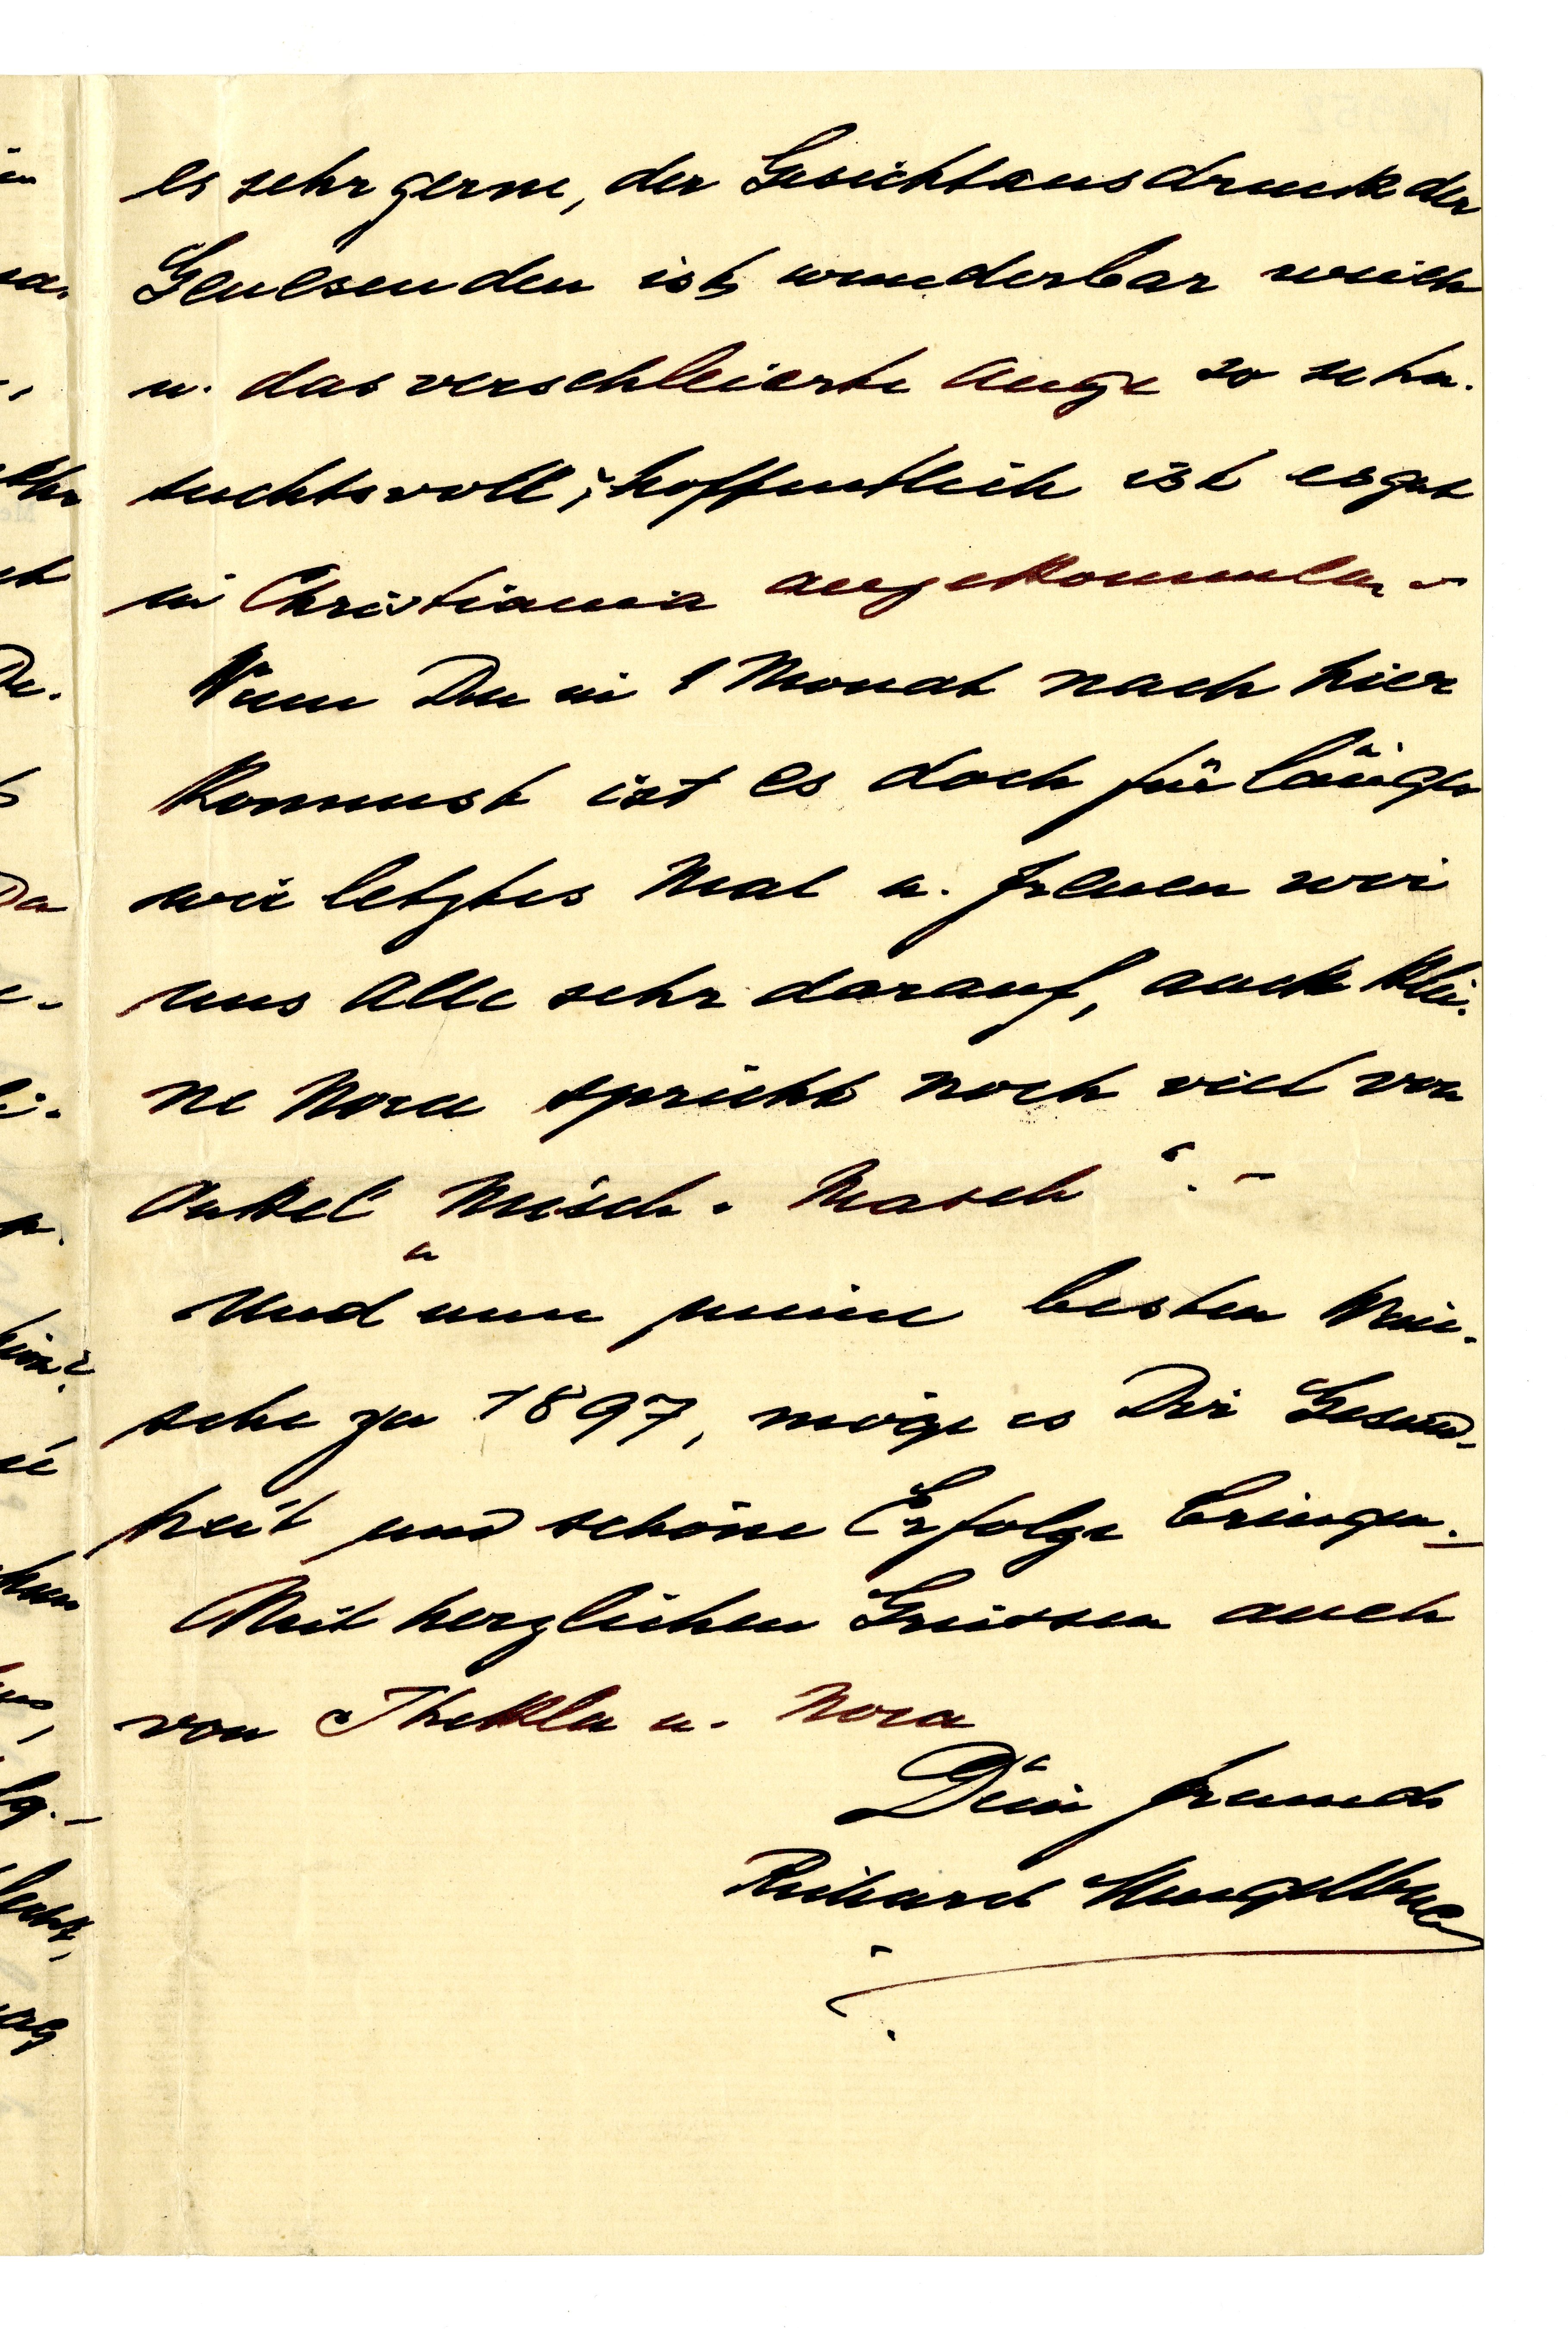 es sehr gerne, der Gesichtsausdruck der
Genesenden ist wunderbar weich
u. das verschleierte Auge so sehn-
suchtsvoll; hoffentlich ist es gut
in Christiania angekommen –
Wenn Du in 1 Monat nach hier
kommst ist es doch für länger
wie letztes Mal u. freuen wir
uns alle sehr darauf, auch klei-
ne Nora spricht noch viel von
Onkel „Misch-Masch“. –
Und nun meine besten Wün-
sche zu 1897, möge es Dir Gesund-
heit und schöne Erfolge bringen. –
Mit herzlichen Grüssen auch
von Thekla u. Nora
Dein Freund
Richard Mengelberg